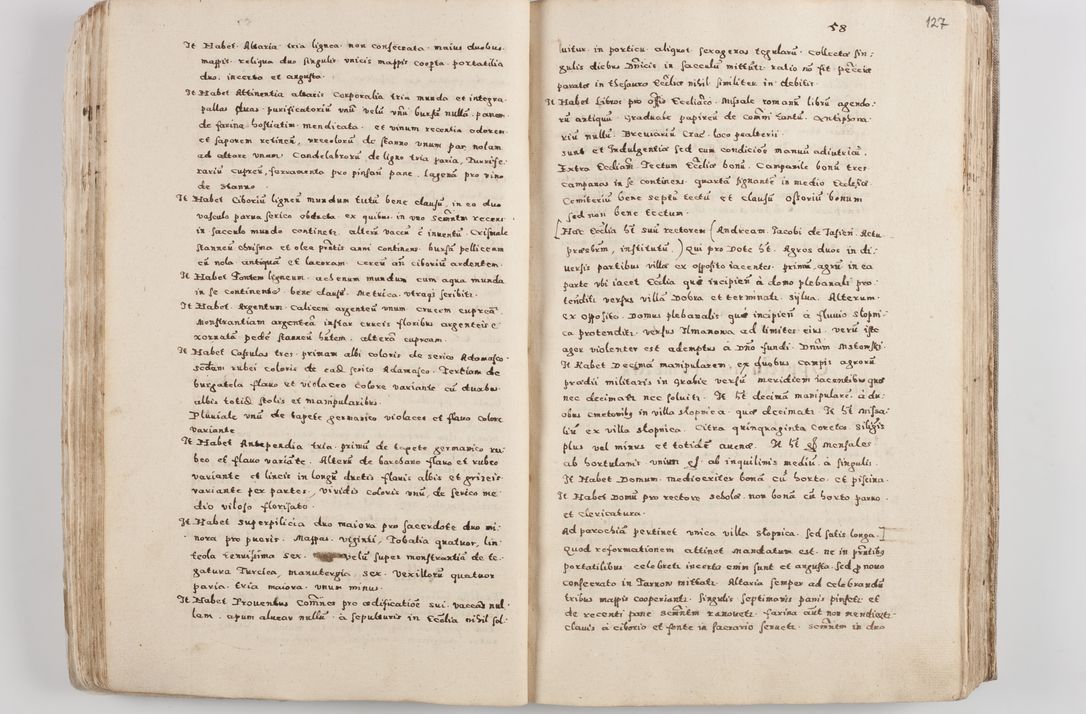 It Habet Altaria tria lignea non consecrata maius duobus
mappis reliqua duo singulis unicis mappis coopta portatilia
duo incerta et angusta
It Habet Attinentia altaris Corporalia tria munda et integra
pallas duas purificatoriũ vnũ velũ vnũ bursã nullã panem
de farina hostiatim mendicata et vinum recentia odorem
et saporem retinen, vrceolorũ de stanno vnum par nolam
ad altare vnam Candelabrorũ de ligno tria paria, Turrife
rariũ cupreũ, ferramenta pro pinsen pane lagenã pro vino
de stanno
It Habet Ciboriũ ligneũ mundum tutũ bene clausũ, in eo duo
vascula parva serico obducta ex quibus in vno scm̃ntm recens
in sacculo mundo continetr alterũ vacuũ ẽ inventũ Crismale
stanneũ chrisma et olea prõtis anni continens bursã pelliceam
cũ nola antiquã et laceram cereũ añ ciboriũ ardentem
It Habet Fontem ligneum aehenum mundum cum aqua munda
in se continente bene clausũ Metrica utraqȝ scribitr
It Habet Argentum Calicem argenteũ vnum crucem cupreã
Monstrantiam argenteã instar crucis floribus argenteis e
xornatã pede stanneũ hñtem alterã cupream
It Habet Casulas tres primam albi coloris de serico Adamasco
scdam rubei coloris de eod serico Adamasco Tertiam de
burgatela flavo et violaceo colore variante cũ duabus
albis totid stolis et manipularibus
Pluviale vnũ de tapete germanico violaceo et flavo colore
variante
It Habet Antependia tria primũ de tapete germanico ru
beo et flavo variãte Alterũ de barchano flavo et rubeo
variante et lineis in longũ ductis flavis albis et griseis
variante per partes, viridis coloris vnũ, de serico me
dio viloso florisato
It Habet Superpilicia duo maiora pro sacerdote duo mi
nora pro pueris Mappas viginti, Tobalia quatuor, lin
teola tenuissima sex velũ super monstrantiã de te
gatura Turcica, manutergia sex Vexillorũ quatuor
paria tria maiora vnum minus
It Habet Proventus Com̃nes pro aedificatiõe sui vaccas nul
lam apum alvear nullũ à sepulturis in Ecclia nihil sol
58
127
vitur in porticu aliquot sexagenas tegularũ Collecta sin
gulis diebus Dñicis in sacculũ mittitr ratio nõ fit pecũia
parata in thesauro Eccliae nihil similiter in debitis
It Habet Libros pro offis Eccliarũ Missale romanũ librũ agendo
rũ antiquũ Graduale papireũ de com̃i cantũ Antiphona
riũ nullũ Breviariũ Crac loco psalterii
sunt et Indulgentiae sed cum condiciõe manuũ adiutriciũ
Extra Eccliam Tectum Eccliae bonũ Campanile bonũ tres
campanas in se continens quartã signantẽ in medio Ecclesiae
Cemiteriũ bene septũ tectũ et clausũ ossoriũ bonum
sed non bene tectum
[Haec Ecclia ht suũ rectorem (Andream Jacobi de Jasień Actu
presbrm, institutũ) Qui pro Dote ht Agros duos in di
versis partibus villae ex opposito iacentes primũ agrũ in ea
parte vbi iacet Ecclia qui incipienẽ à domo plebanali pro
tenditr versus villã Dobra et terminatr sylva Alterum
ex opposito Domus plebanalis que incipienẽ à fluvio slopni
ca protenditr versus Ilmanowa ad limites eius verũ iste
ager violenter est ademptus à Dño fundi Dnũm Mstowski
It Habet Decimã manipularem ex duobus campis agrorũ
praedii militaris in Grabie versũ meridiem iacentibus quae
nec decimatr nec solvitr It ht decimã manipularẽ à du
obus cmetonibȝ in villa slopnica quae decimatr It ht missa
liũ ex villa slopnica Citra quinquaginta coretos siliginis
plus vel minus et totidẽ avenae It ht gs mensales
ab hortulanis vnum gs ab inquilinis mediũ à singulis
It Habet Domum mediocriter bonã cũ horto et piscina
It Habet Domũ pro rectore scholae non bonã cũ horto parvo
et clericatura
Ad parochiã pertinet vnica villa slopnica sed satis longa]
Quod reformationem attinet mandatum est ne in prñtibus
portatilibus celebretr incerta enim sunt et angusta sed pro novo
consecrato in Tarnow mittatr Altaria semper ad celebrandũ
tribus mappis cooperiantr Singulis septimanis panis pinsetr et
de recenti pane scm̃ntm ranovetr farina aũt non mendicetr
Clavis à ciborio et fonte in sacrario servetr scm̃ntm in duo